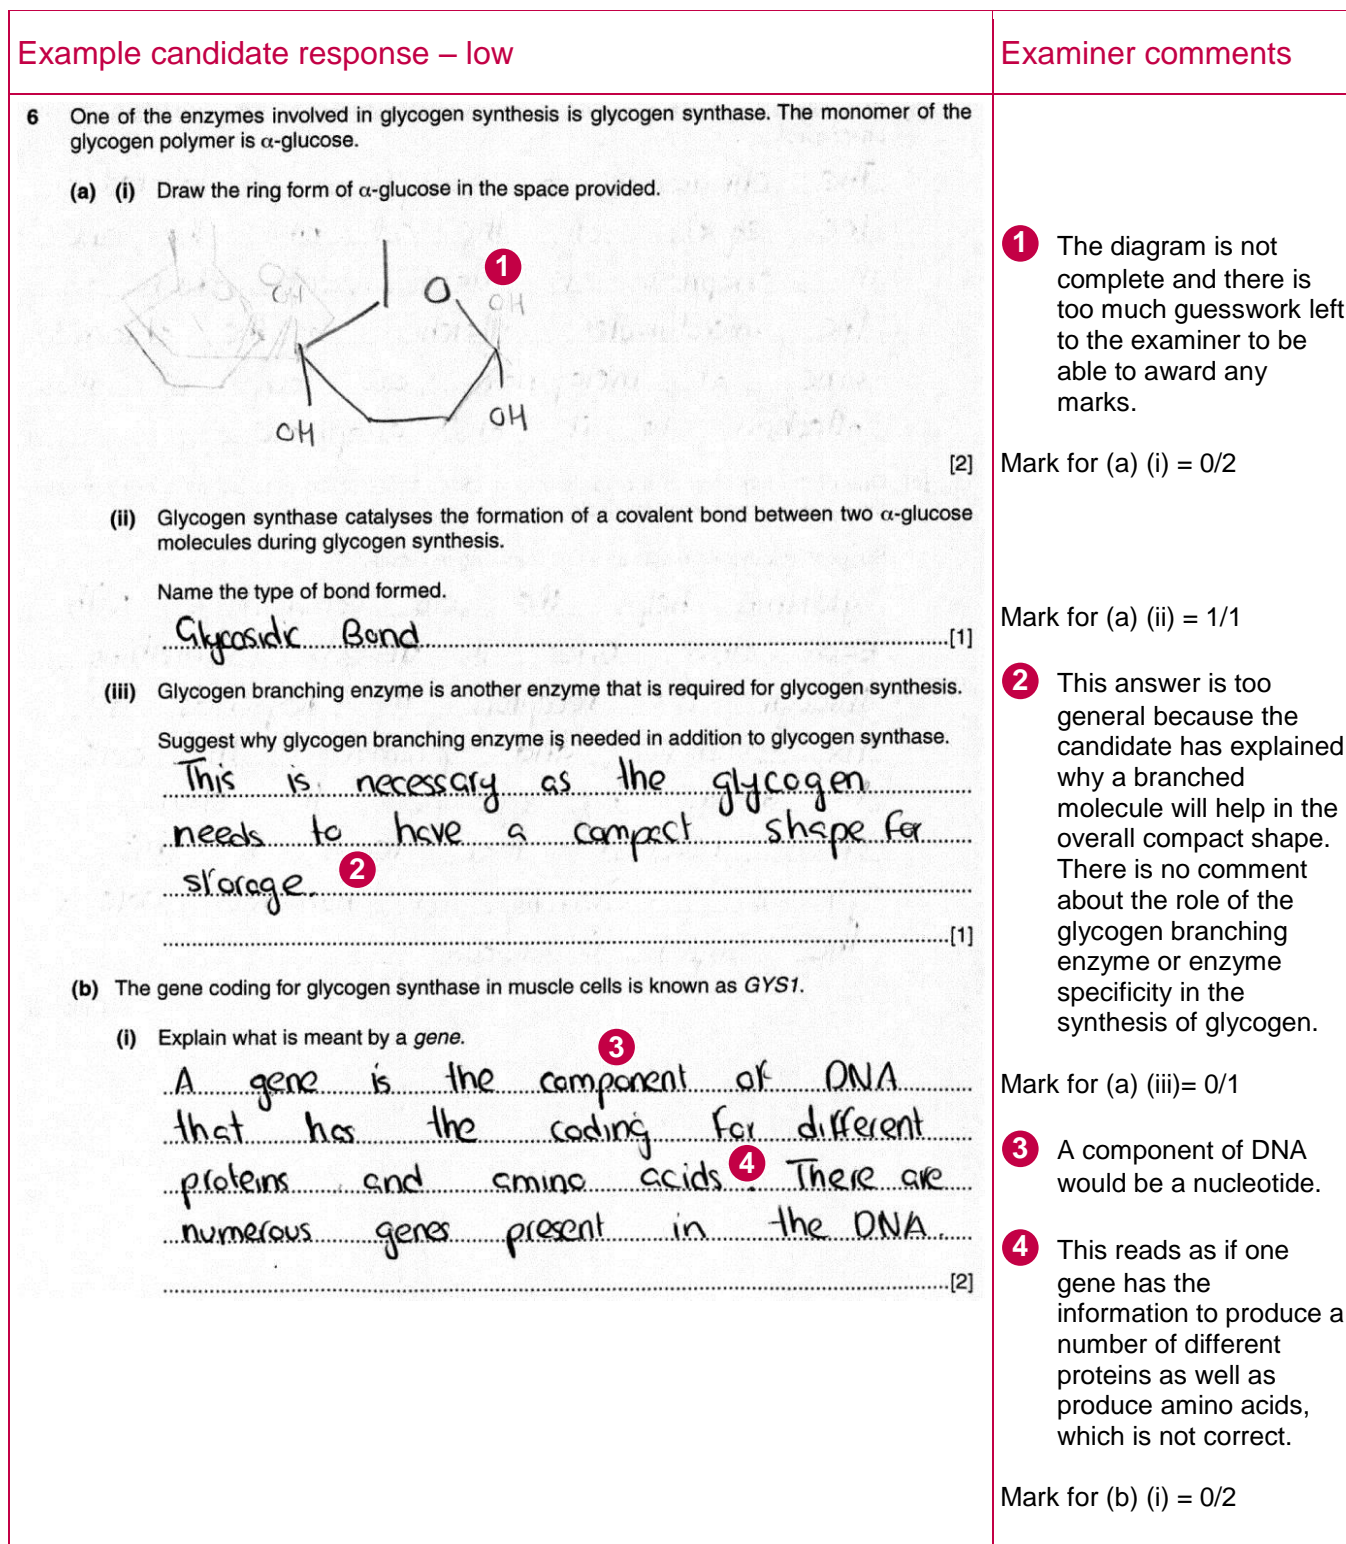 Example candidate response – low
Examiner comments
6 One of the enzymes involved in glycogen synthesis is glycogen synthase. The monomer of the
glycogen polymer is α-glucose.
(a) (i) Draw the ring form of α-glucose in the space provided.
1
O
OH
OH
OH
OH
[2]
(ii) Glycogen synthase catalyses the formation of a covalent bond between two α-glucose
molecules during glycogen synthesis.
Name the type of bond formed.
Glycosidic Bond [1]
(iii) Glycogen branching enzyme is another enzyme that is required for glycogen synthesis.
Suggest why glycogen branching enzyme is needed in addition to glycogen synthase.
This is necessary as the glycogen
needs to have a compact shape for
storage. 2
[1]
(b) The gene coding for glycogen synthase in muscle cells is known as GYS1.
(i) Explain what is meant by a gene.
3
A gene is the component of DNA
that has the coding for different
proteins and amino acids 4 . There are
numerous genes present in the DNA.
[2]
1 The diagram is not
complete and there is
too much guesswork left
to the examiner to be
able to award any
marks.
Mark for (a) (i) = 0/2
Mark for (a) (ii) = 1/1
2 This answer is too
general because the
candidate has explained
why a branched
molecule will help in the
overall compact shape.
There is no comment
about the role of the
glycogen branching
enzyme or enzyme
specificity in the
synthesis of glycogen.
Mark for (a) (iii)= 0/1
3 A component of DNA
would be a nucleotide.
4 This reads as if one
gene has the
information to produce a
number of different
proteins as well as
produce amino acids,
which is not correct.
Mark for (b) (i) = 0/2